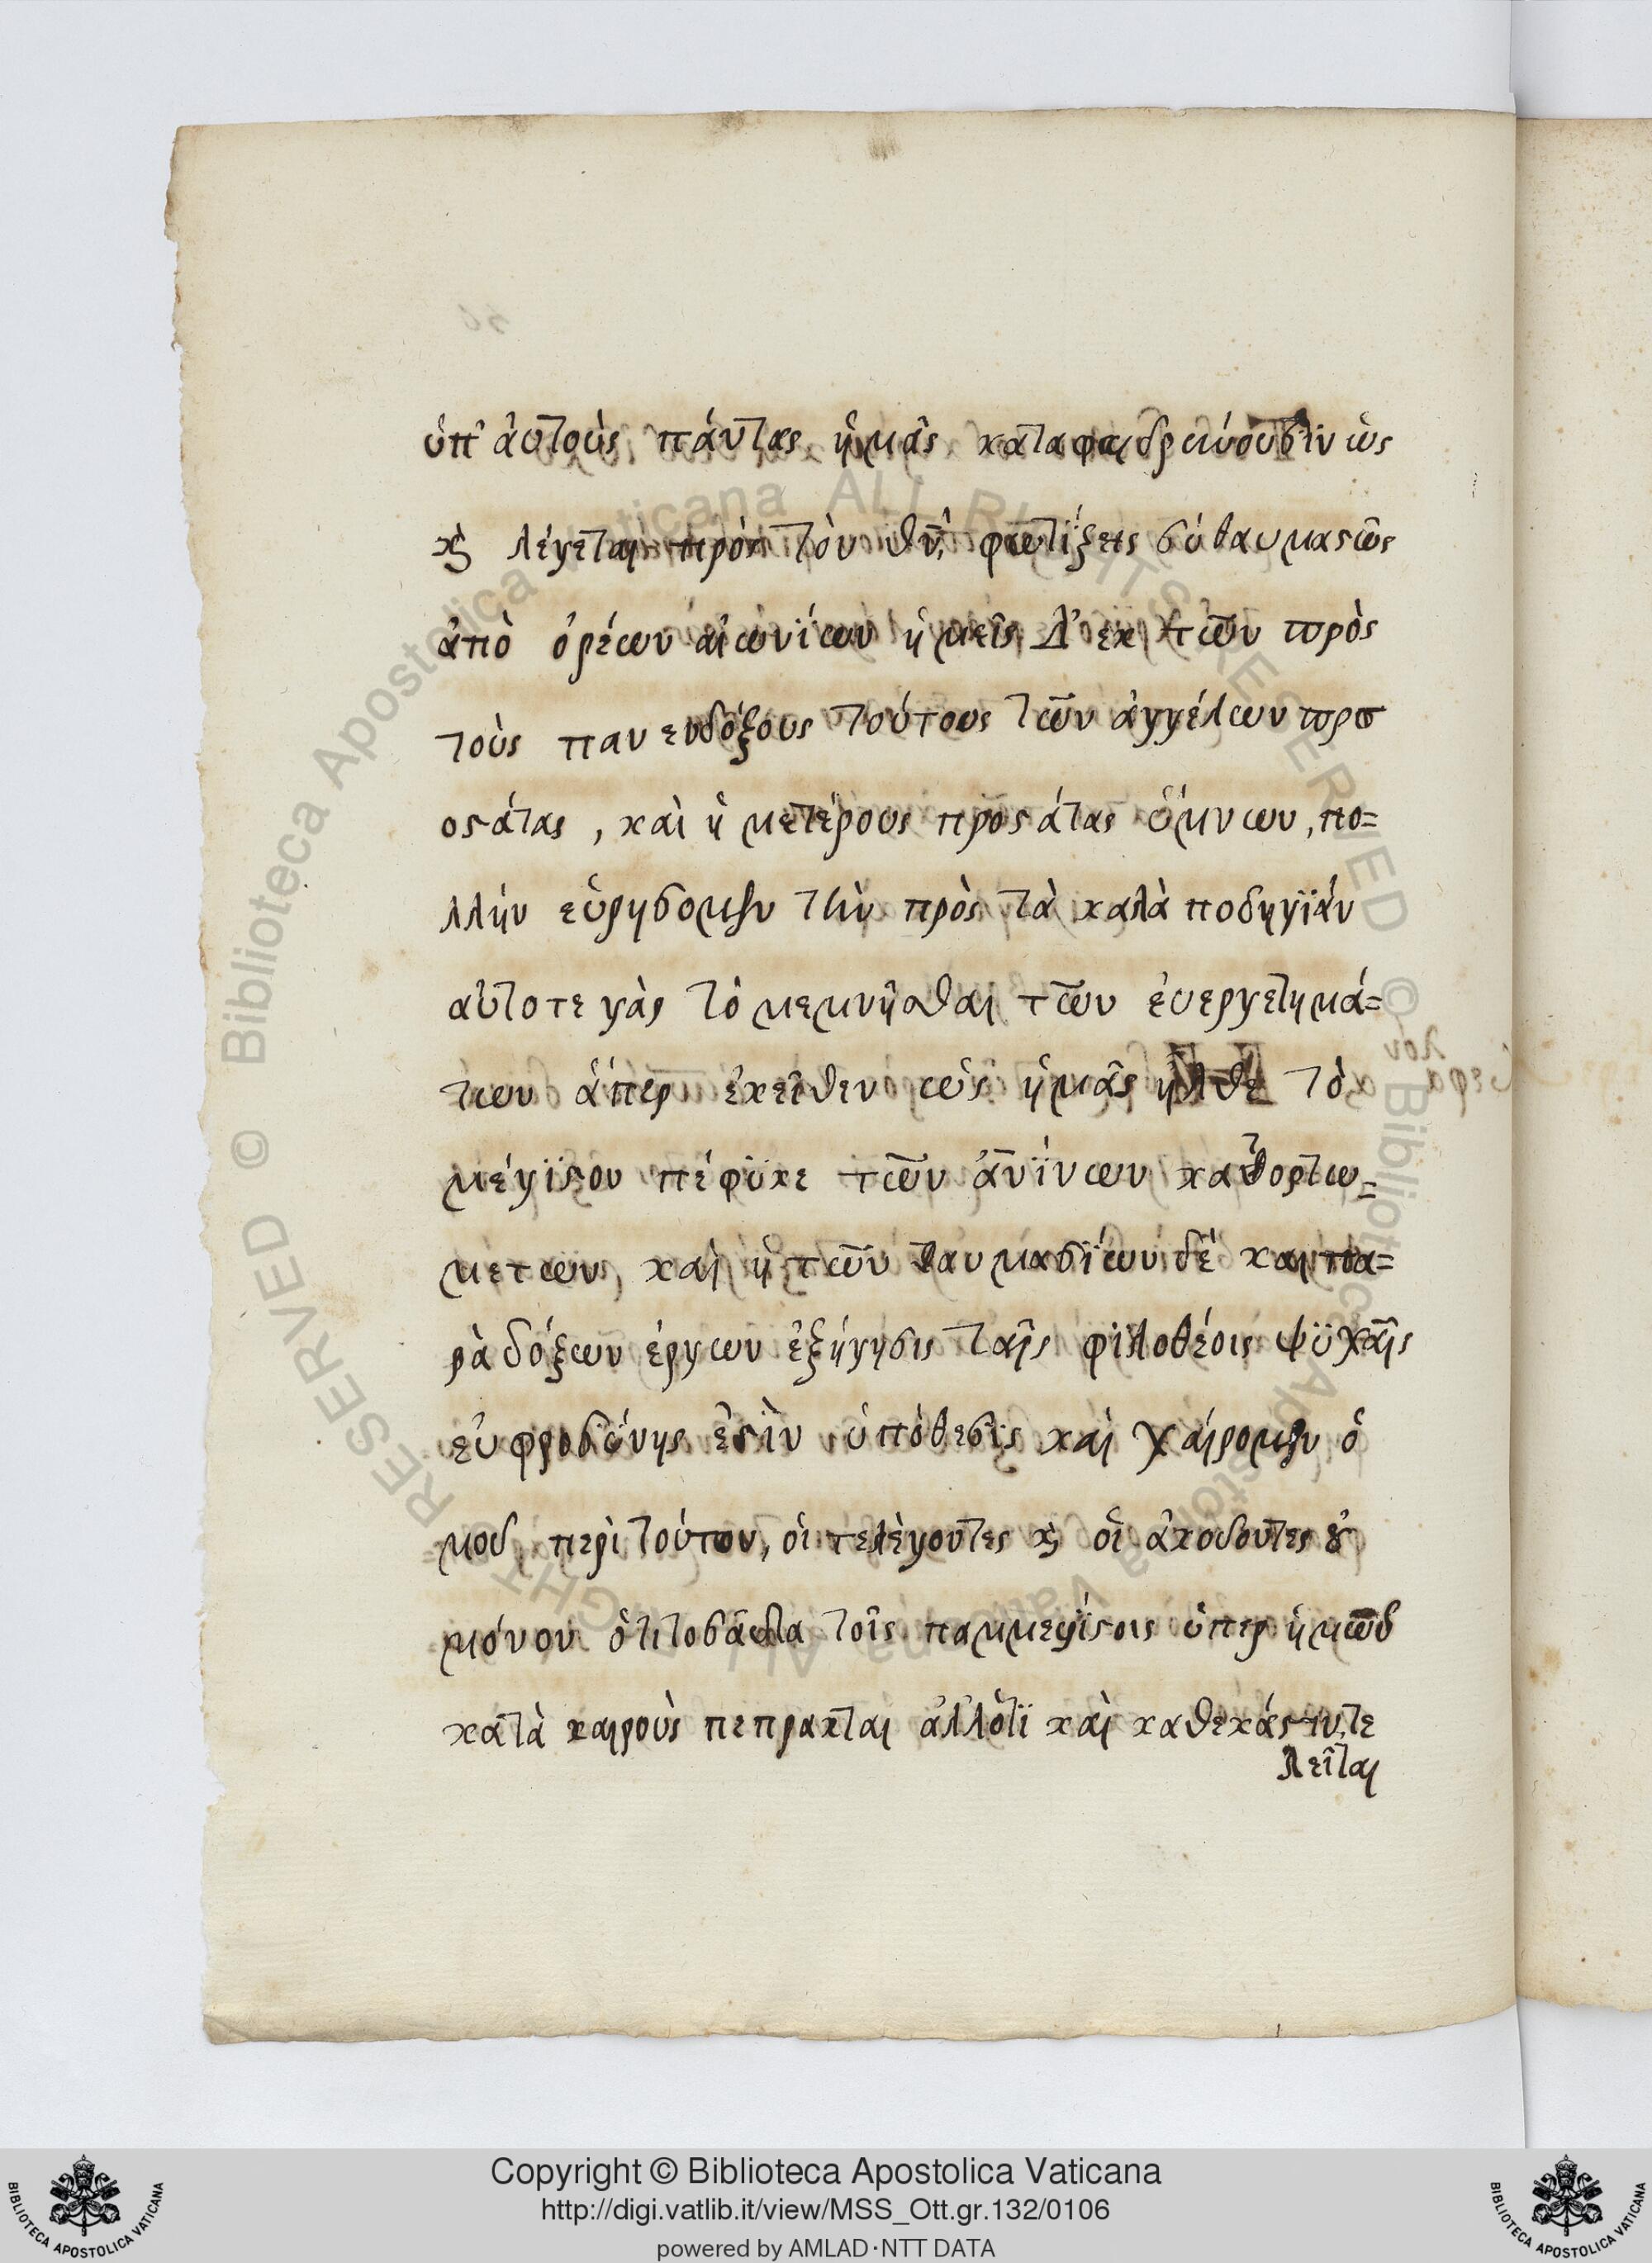 ὑπ' ἀυτοὺς πάντας ἡμᾶς καταφαιδρύνουσϊν ὡς
κὶ λέγεται πρὸς τὸν θν̄, φωτίζεις σύ θαυμαςῶς
ἀπὸ ὀρέων αἰωνίων ἡμεῖς δ' εκ τῶν πρὸς
τοὺς πανενδόξους τούτους τῶν ἀγγέλων προ
οςάτας, καὶ ἡμετέρους προςάτας ὕμνων, πο=
λλὴν εὑρησομεν τὴν πρὸς τὰ καλὰ ποδηγϊάν
αὐτοτε γὰρ τὸ μεμνῆσθαι τῶν ἐυεργετημά=
των ἅπερ ἐκεῖθεν ὡς ἡμᾶς ἠλθε τὸ
μέγϊςον πέφϋκε τῶν ἀνΐνων κατορθω=
μετων, καὶ ἡ τῶν θαυμασΐων δέ και πα=
ρὰ δόξων ἐργων ἐξήγησις ταῖς φϊλοθέοις ψϋχαῖς
εὐφροσΰνης ἐςῒν ὑπόθεσϊς καὶ χαίρομεν ὁ
μοῦ περὶ τούτου, οἱ τελέγοντες κὶ οἱ ἀκούοντες ȣ̓
μόνον ὁτι τοσαῦτα τοῖς παμμεγΐςοις ὑπερ ἡμῶν
κατὰ καιροὺς πεπρακται ἀλλ' ὁτϊ καὶ καθεκάςην, τε
λεῖται
Copyright © Biblioteca Apostolica Vaticana
http://digi.vatlib.it/view/MSS_Ott.gr.132/0106
powered by AMLAD·NTT DATA
BIBLIOTECA APOSTOLICA VATICANA
BIBLIOTECA APOSTOLICA VATICANA